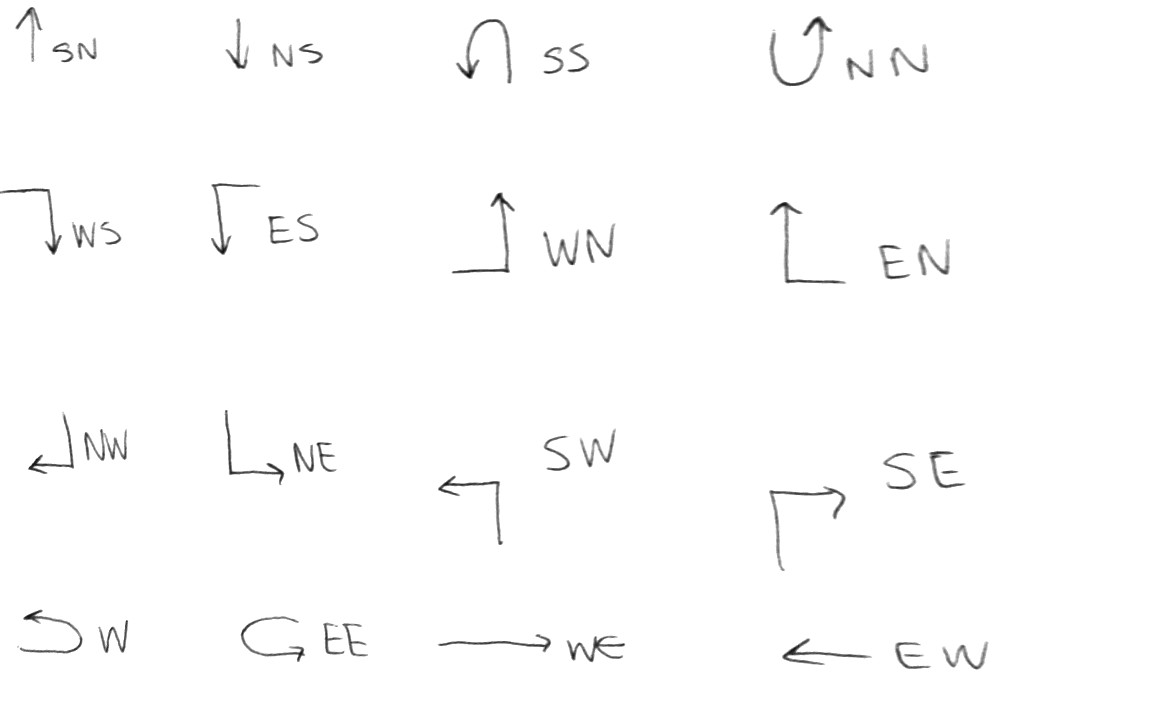 SN NS SS NN
WS ES WN EN
NW NE SW SE
W EE WE EW